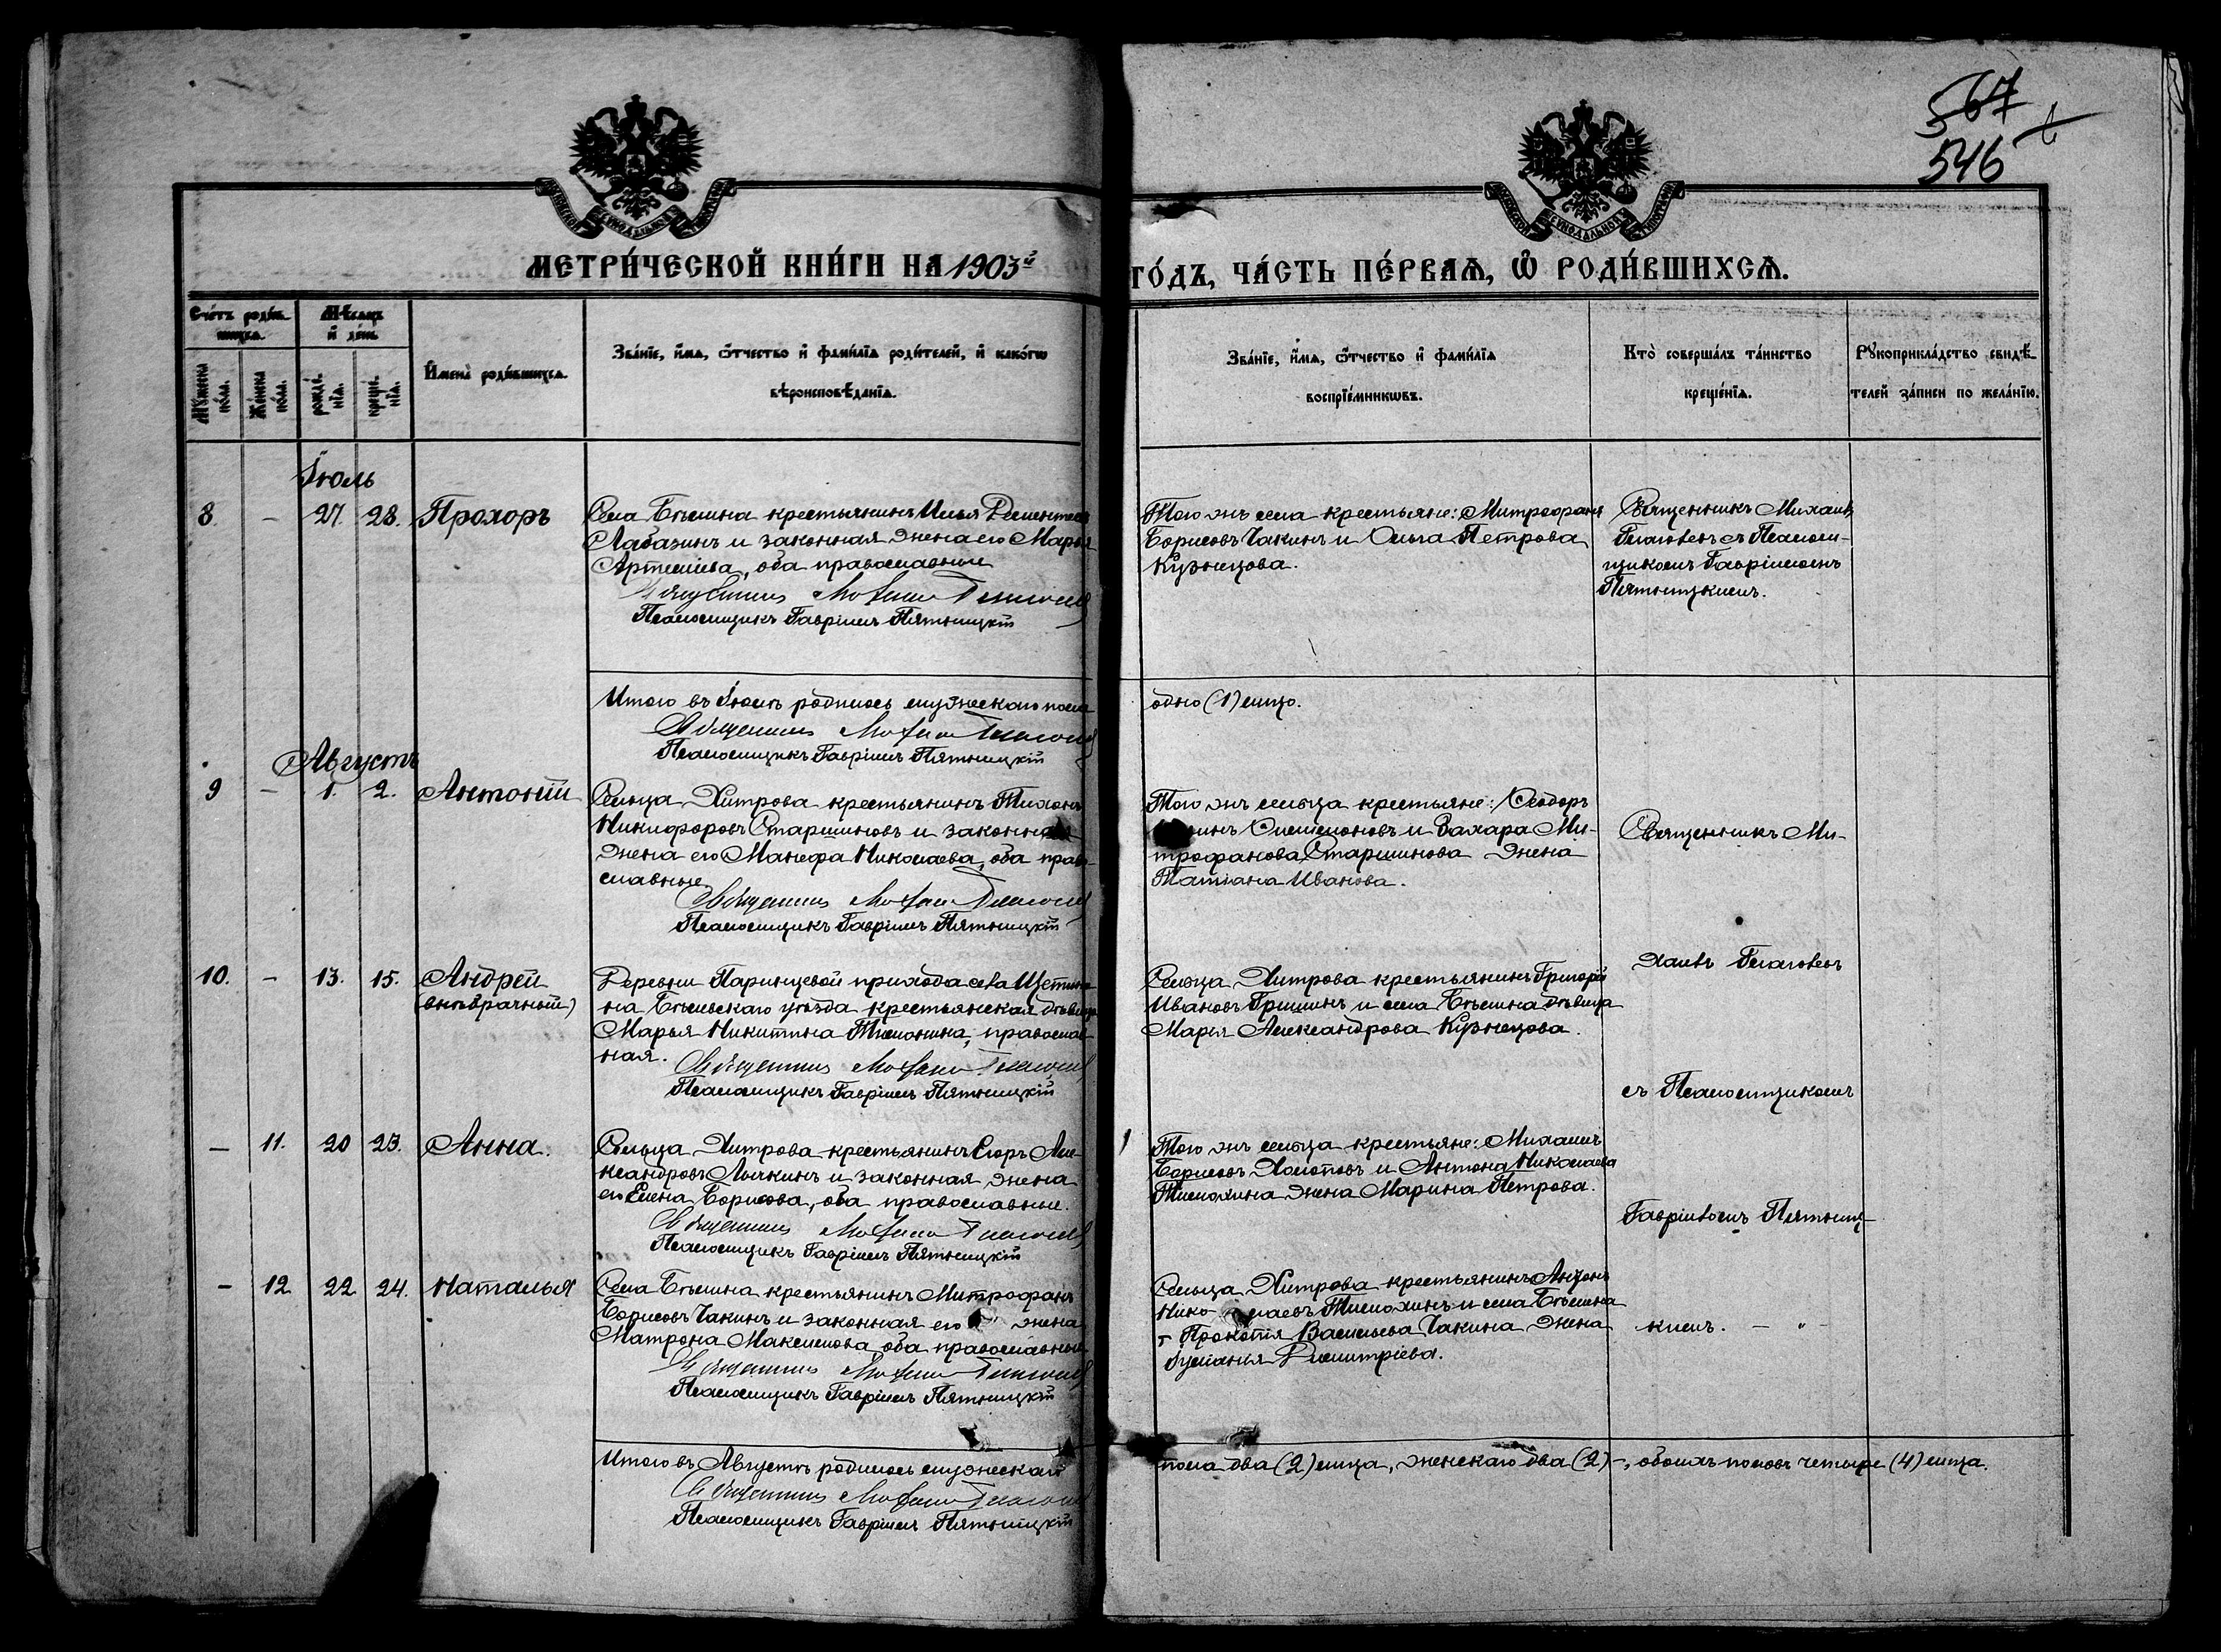 567
546
МЕТРИ́ЧЕСКОЙ КНИ́ГИ НА 1903й
ГО́ДЪ, ЧА́СТЬ ПЕ́РВАѦ, Ѽ РОДИ́ВШИХСѦ.
Сче́тъ роди́в-
шихсѧ.
Мѣсѧцъ
и҆ де́нь
Мꙋжеска по́ла.
Же́нска по́ла.
рожде́-
нїѧ.
креще́-
нїѧ.
И҆мена̀ роди́вшихсѧ.
Зва́нїе, и҆́мѧ, ѻ҆́тчество и҆ фамі́лїѧ роди́телей, и҆ како́гѡ
вѣроисповѣ́данїѧ.
Зва́нїе, и҆́мѧ, ѻ҆́тчество и҆ фамі́лїѧ
воспрїе́мникѡвъ.
Кто̀ соверша́лъ та́инство
креще́нїѧ.
Рꙋкоприкла́дство свидѣ́-
телей за́писи по жела́нїю.
Іюль
8. - 27. 28. Прохоръ
Села Бѣлина крестьянинъ Илья
Лабазинъ и законная жена его Марья
Артемьева, оба православные
Псаломщикъ Гавріилъ Пятницкій
Того жъ села крестьяне: Митрофанъ
Борисовъ Чакинъ и Ольга Петрова
Кузнецова.
Священникъ Михаилъ
съ Псалом-
щикомъ Гавріиломъ
Пятницкимъ.
Итого въ Іюлѣ родилось мужескаго пола
Псаломщикъ Гавріилъ Пятницкій
одно (1) лицо.
Августъ
9 - 1. 2. Антоній
Сельца Хитрова крестьянинъ Тихонъ
Никифоровъ Старшиновъ и законная
жена его Манефа Николаева, оба право-
славные
Псаломщикъ Гавріилъ Пятницкій
Того жъ сельца крестьяне: Ѳеодоръ
Симеоновъ и Захара Ми-
трофанова Старшинова жена
Татіана Иванова.
Священникъ Ми-
10. - 13. 15. Андрей
(внѣбрачный)
Деревни Паринцевой прихода села
на Бѣлевскаго уѣзда крестьянская дѣвица
Марья Никитина, православ-
ная.
Псаломщикъ Гавріилъ Пятницкій
Сельца Хитрова крестьянинъ Григорій
Ивановъ Гришинъ и села Бѣлина дѣвица
Марья Александрова Кузнецова.
хаилъ
съ Псаломщикомъ
- 11. 20 23. Анна.
Сельца Хитрова крестьянинъ Егоръ Але-
ксандровъ и законная жена
его Елена Борисова, оба православные.
Псаломщикъ Гавріилъ Пятницкій
Того жъ сельца крестьяне: Михаилъ
Борисовъ и Антона Николаева
Тимохина жена Марина Петрова.
Гавріиломъ Пятниц-
- 12 22 24. Наталья
Села Бѣлина крестьянинъ Митрофанъ
Борисовъ Чакинъ и законная его жена
Матрона Максимова, оба православные
Псаломщикъ Гавріилъ Пятницкій
Сельца Хитрова крестьянинъ Антонъ
Нико лаевъ Тимохинъ и села Бѣлина
Прокопія Васильева Чакина жена
Димитріева.
кимъ. - " -
Итого въ Августѣ родилось мужескаго
Псаломщикъ Гавріилъ Пятницкій
пола два (2) лица, женскаго два (2) -, обоихъ половъ четыре (4) лица.